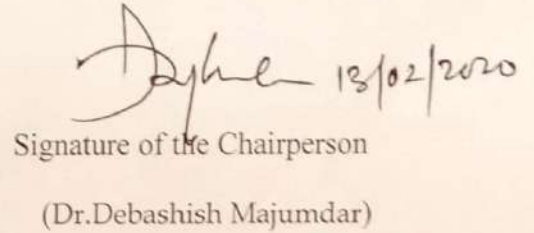 13/02/2020
Signature of the Chairperson
(Dr.Debashish Majumdar)